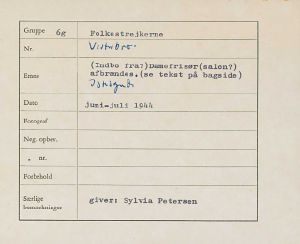 Gruppe 6g Folkestrejkerne
Nr.
Emne (Indbo fra?)Damefrisør(salon?)
afbrændes.(se tekst på bagside)
Dato juni-juli 1944
Fotograf
Neg. opbev.
„ nr.
Forbehold
Særlige
bemærkninger giver: Sylvia Petersen